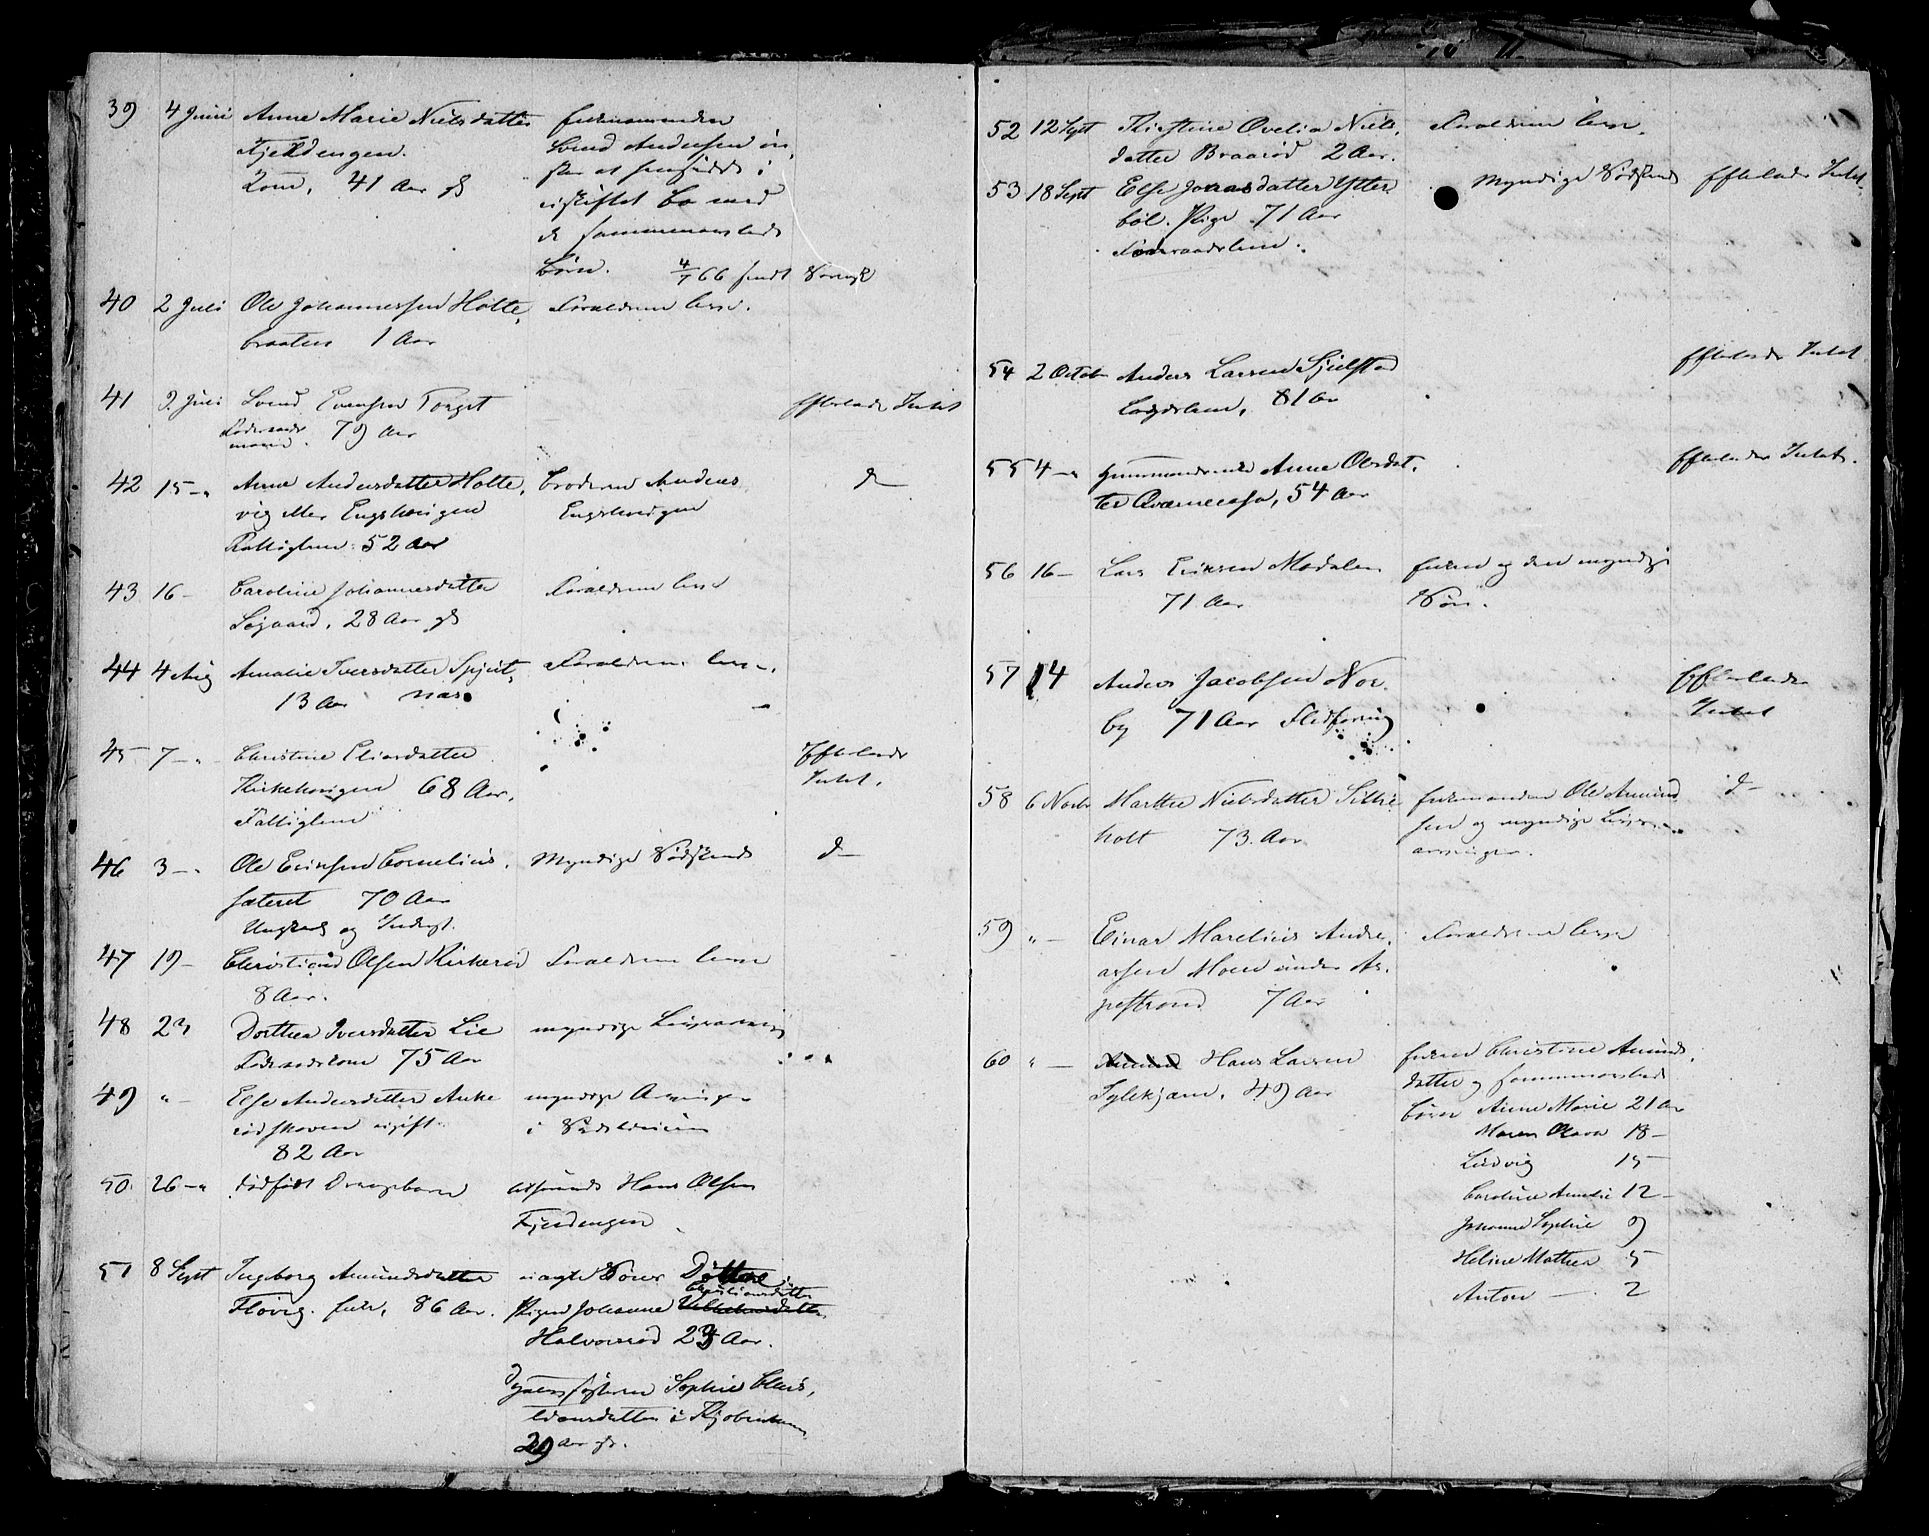 39 4 Juni Anne Marie Nielsdatter
Fjeldengen.
Kone, 41 Aar gl
Enkemanden
Svend Andersen øn,
sker at hensidde i
uskiftet bo med
de sammenavlede
børn. 4/7 66 sendt
40 2 Juli Ole Johannessen Holte,
braaten 1 Aar
Forældrene leve.
41 2 Juli Svend Evensen Torget
Føderaads
mand. 79 Aar
Efterlader Intet
42 15 – " Anne Andersdatter Holte,
vig eller Engehaugen
Fattiglem. 52 Aar
Broderen Anders
Engehaugen
d –
43 16 – Caroline Johannesdatter
Søgaard, 28 Aar gl
Forældrene leve
44 4 Aug Amalie Iversdatter Spjut,
13 Aar næs.
Forældrene leve.
45 7 – " Christine Eliasdatter
Kirkehaugen 68 Aar.
Fattiglem
Efterlader
Intet.
46 3 – " Ole Eriksen Cornelius,
sæteret 70 Aar
Ungkarl og Inderst.
Myndige Sødskende
d –
47 19 – Christian Olsen Kirkerød
8 Aar.
Forældrene leve
48 23 Dorthea Iversdatter Lie
Føderaadskone 75 Aar
myndige Livsarving
49 " – Else Andersdatter Anke
rødskoven ugift.
82 Aar
myndige Arvinger
i
50. 26 – " Dødfødt Drengebarn
Hans Olsen
Fjeldengen
51 8 Sept Ingeborg Amundsdatter
Fløvig. Enke, 86 Aar.
uægte Døtre
Christiansdatter
Pigen Johanne
Halvorsrød 23 Aar.
Sophie Chris,
tiansdatter i Kjøbenhavn
29 Aar gl.
52 12 Sept Thirstine Ovelia Niels,
datter Braarød 2 Aar.
Forældrene leve.
53 18 Sept Else Jonasdatter Ytter
bøl. Pige 71 Aar
Føderaadslem.
Myndige Sødskende
Efterlader Intet.
54 2 Octobr Anders Larsen Sjulstad
Lægdslem, 81 Aar
Efterlader Intet.
55 4 – " Gaardmandsenke Anne Olsdat,
ter Qværnaasen, 54 Aar
Efterlader Intet.
56 16 – Lars Eriksen Modalen
71 Aar
Enken og den myndige
Søn.
57 14 Anders Jacobsen Nor,
by 71 Aar Fledføring
Efterlader
Intet
58 6 Novbr Marthe Nielsdatter Sillie
holt 73 Aar
Enkemanden Ole Amund
sen og myndige Livs
arvinger.
d –
59 " – Einar Marelius Andre,
assen Moen under As,
pestrand 7 Aar
Forældrene leve
60 " – Hans Larsen
Sylekjærn, 49 Aar
Enken Christine Amunds,
datter og sammenavlede
børn Anne Marie 21 Aar
Maren Olava 18 –
Ludvig 15 –
Caroline Amalie 12 –
Johanne Sophie 9
Heline Mathea 5
Anton – 2